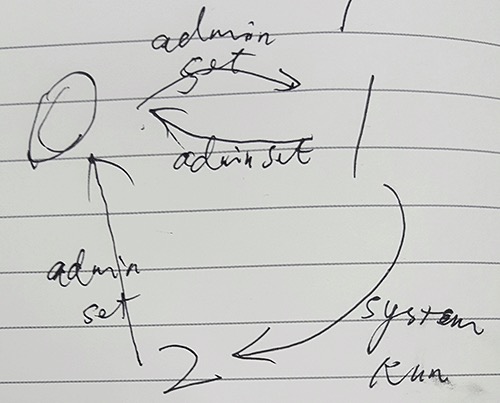 admin
set
0
1
admin set
admin
set
system
Run
2